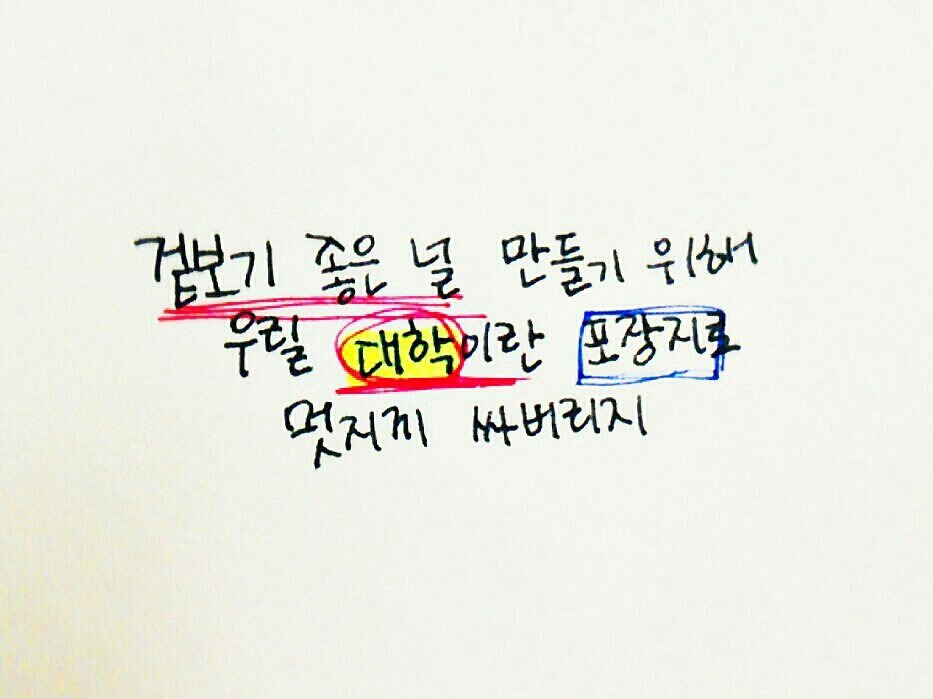 겉보기 좋은 널 만들기 위해
우릴 대학이란 포장지로
멋지게 싸버리지